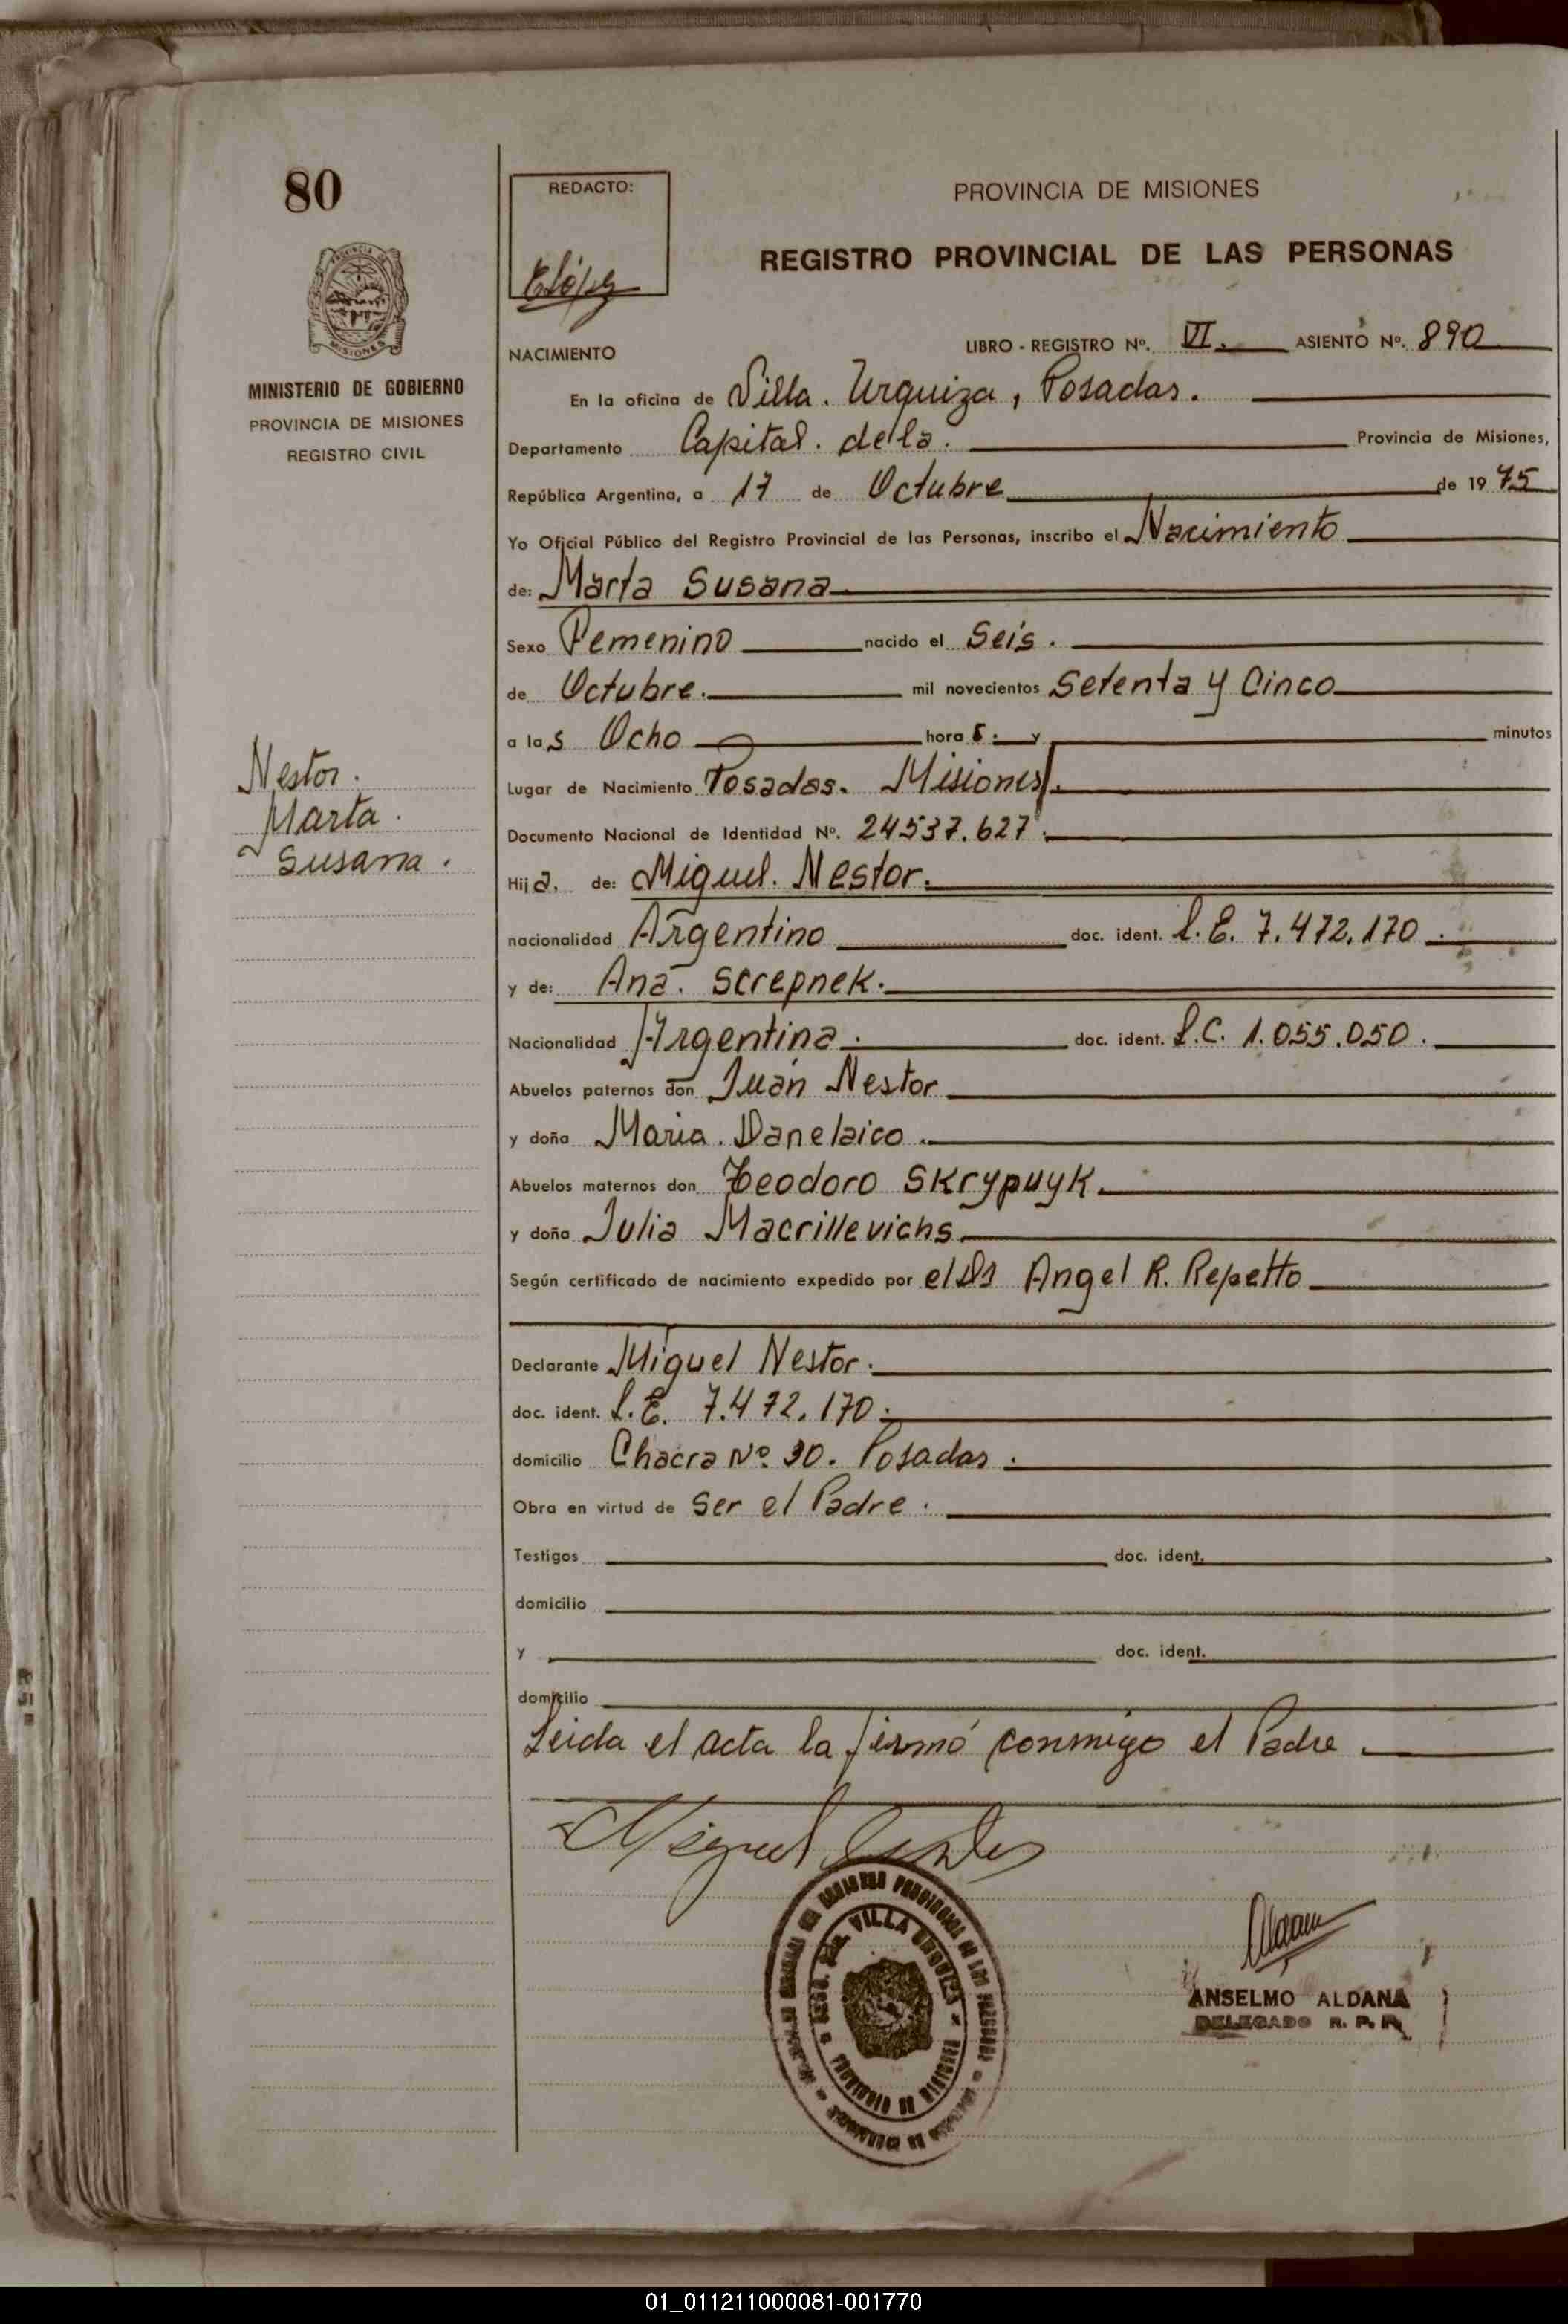 80
MINISTERIO DE GOBIERNO
PROVINCIA DE MISIONES
REGISTRO CIVIL
Nestor.
Marta.
Susana.
REDACTO:
PROVINCIA DE MISIONES
REGISTRO PROVINCIAL DE LAS PERSONAS
LIBRO - REGISTRO Nº. VI. ASIENTO Nº. 890
NACIMIENTO
En la oficina de Villa. Urquiza, Posadas.
Departamento Capital. de la. Provincia de Misiones,
República Argentina, a 17 de Octubre de 1975
Yo Oficial Público del Registro Provincial de las Personas, inscribo el Nacimiento
de: Marta Susana
Sexo Femenino nacido el Seis.
de Octubre. mil novecientos Setenta y Cinco
a las Ocho horas. y minutos
Lugar de Nacimiento Posadas. Misiones.
Documento Nacional de Identidad Nº. 24537.627.
Hija. de: Miguel. Nestor.
nacionalidad Argentino doc. ident. L.E. 7.472.170.
y de: Ana. Screpnek.
Nacionalidad Argentina. doc. ident. L.C. 1.055.050.
Abuelos paternos don Juan Nestor
y doña Maria. Danelaico.
Abuelos maternos don Teodoro Skrypuyk.
y doña Julia Macrillevichs
Según certificado de nacimiento expedido por el Dr Angel R. Repetto
Declarante Miguel Nestor.
doc. ident. L.E. 7.472.170.
domicilio Chacra Nº 30. Posadas.
Obra en virtud de Ser el Padre.
Testigos doc. ident.
domicilio
y doc. ident.
domicilio
Leida el acta la firmó conmigo el Padre.
Miguel
VILLA URQUIZA
PROVINCIA DE MISIONES
ANSELMO ALDANA
DELEGADO R. P. P.
01_011211000081-001770